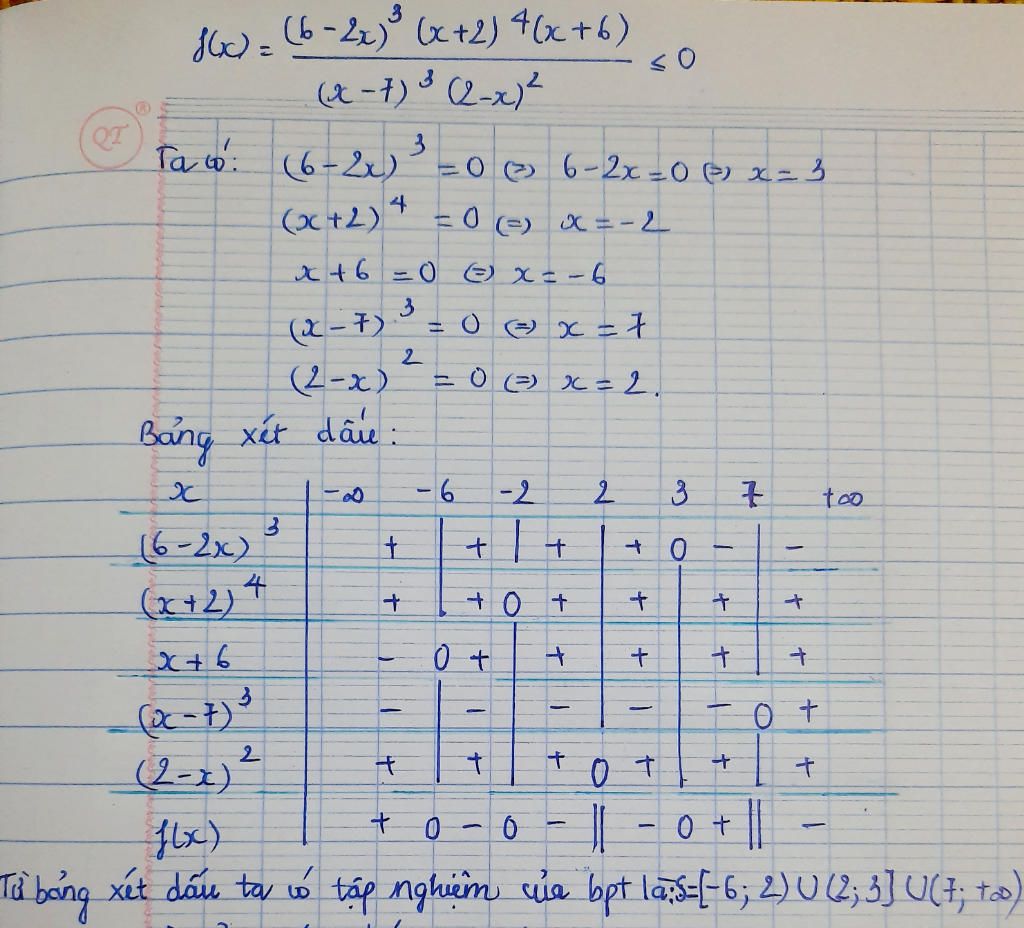 f(x) = (6-2x)³ (x+2)⁴ (x+6) / (x-7)³ (2-x)² ≤ 0
QT ®
Ta có: (6-2x)³ = 0 (=) 6-2x = 0 (=) x = 3
(x+2)⁴ = 0 (=) x = -2
x + 6 = 0 (=) x = -6
(x-7)³ = 0 (=) x = 7
(2-x)² = 0 (=) x = 2.
Bảng xét dấu:
x | -∞ -6 -2 2 3 7 +∞
(6-2x)³ + | + | + | + 0 - | -
(x+2)⁴ + | + 0 + | + | + | +
x+6 - 0 + | + | + | + | +
(x-7)³ - | - | - | - | - 0 +
(2-x)² + | + | + 0 + | + | +
f(x) + 0 - 0 - || - 0 + || -
Từ bảng xét dấu ta có tập nghiệm của bpt là: S=[-6; 2) U (2; 3] U (7; +∞)